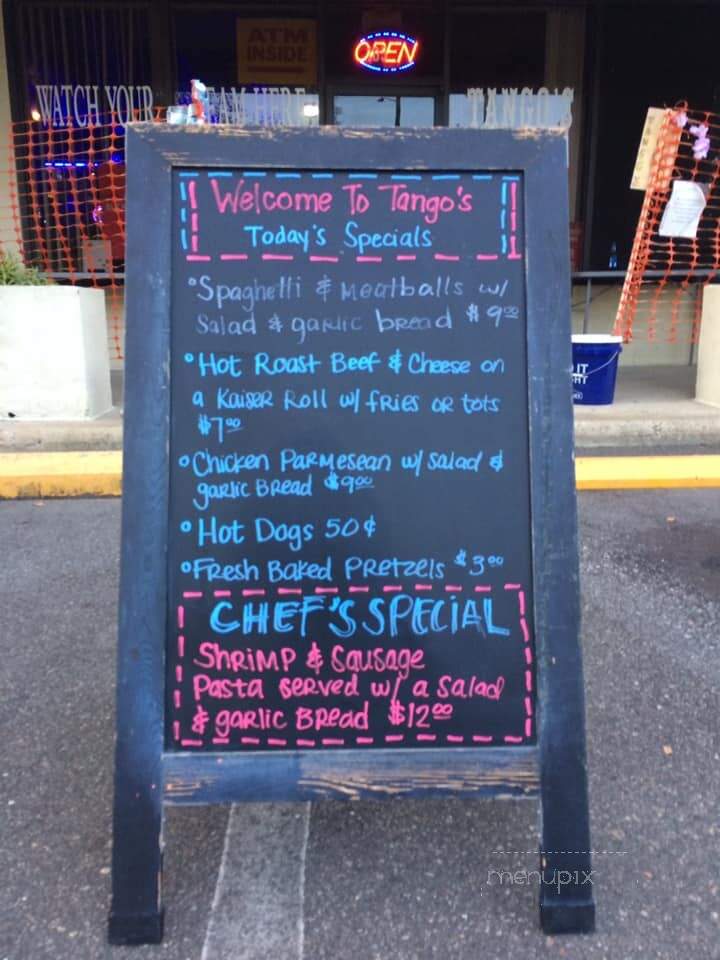 ATM
INSIDE
OPEN
WATCH YOUR TEAM HERE
TANGO'S
Welcome To Tango's
Today's Specials
°Spaghetti & Meatballs w/
Salad & garlic bread $9.00
°Hot Roast Beef & Cheese on
a Kaiser Roll w/ fries or tots
$7.00
°Chicken Parmesean w/ salad &
garlic Bread $9.00
°Hot Dogs 50¢
°Fresh Baked Pretzels $3.00
CHEF'S SPECIAL
Shrimp & Sausage
Pasta served w/ a Salad
& garlic Bread $12.00
menupix